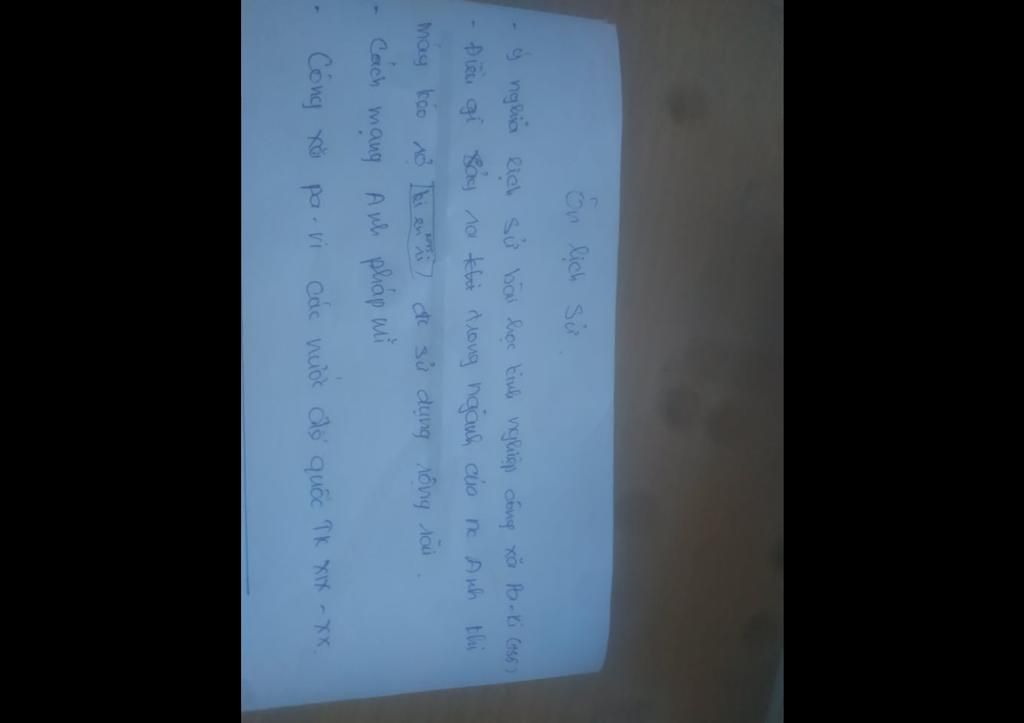 Ôn lịch sử.
- ý nghĩa lịch sử bài học kinh nghiệp công xã Pa-ri
- Điều gì xảy ra khi trong ngành của nc Anh khi
máy kéo sợi đc sử dụng rộng rãi.
- Cách mạng Anh pháp Mĩ
- Công xã pa-ri các nước đế quốc TK XIX - XX.